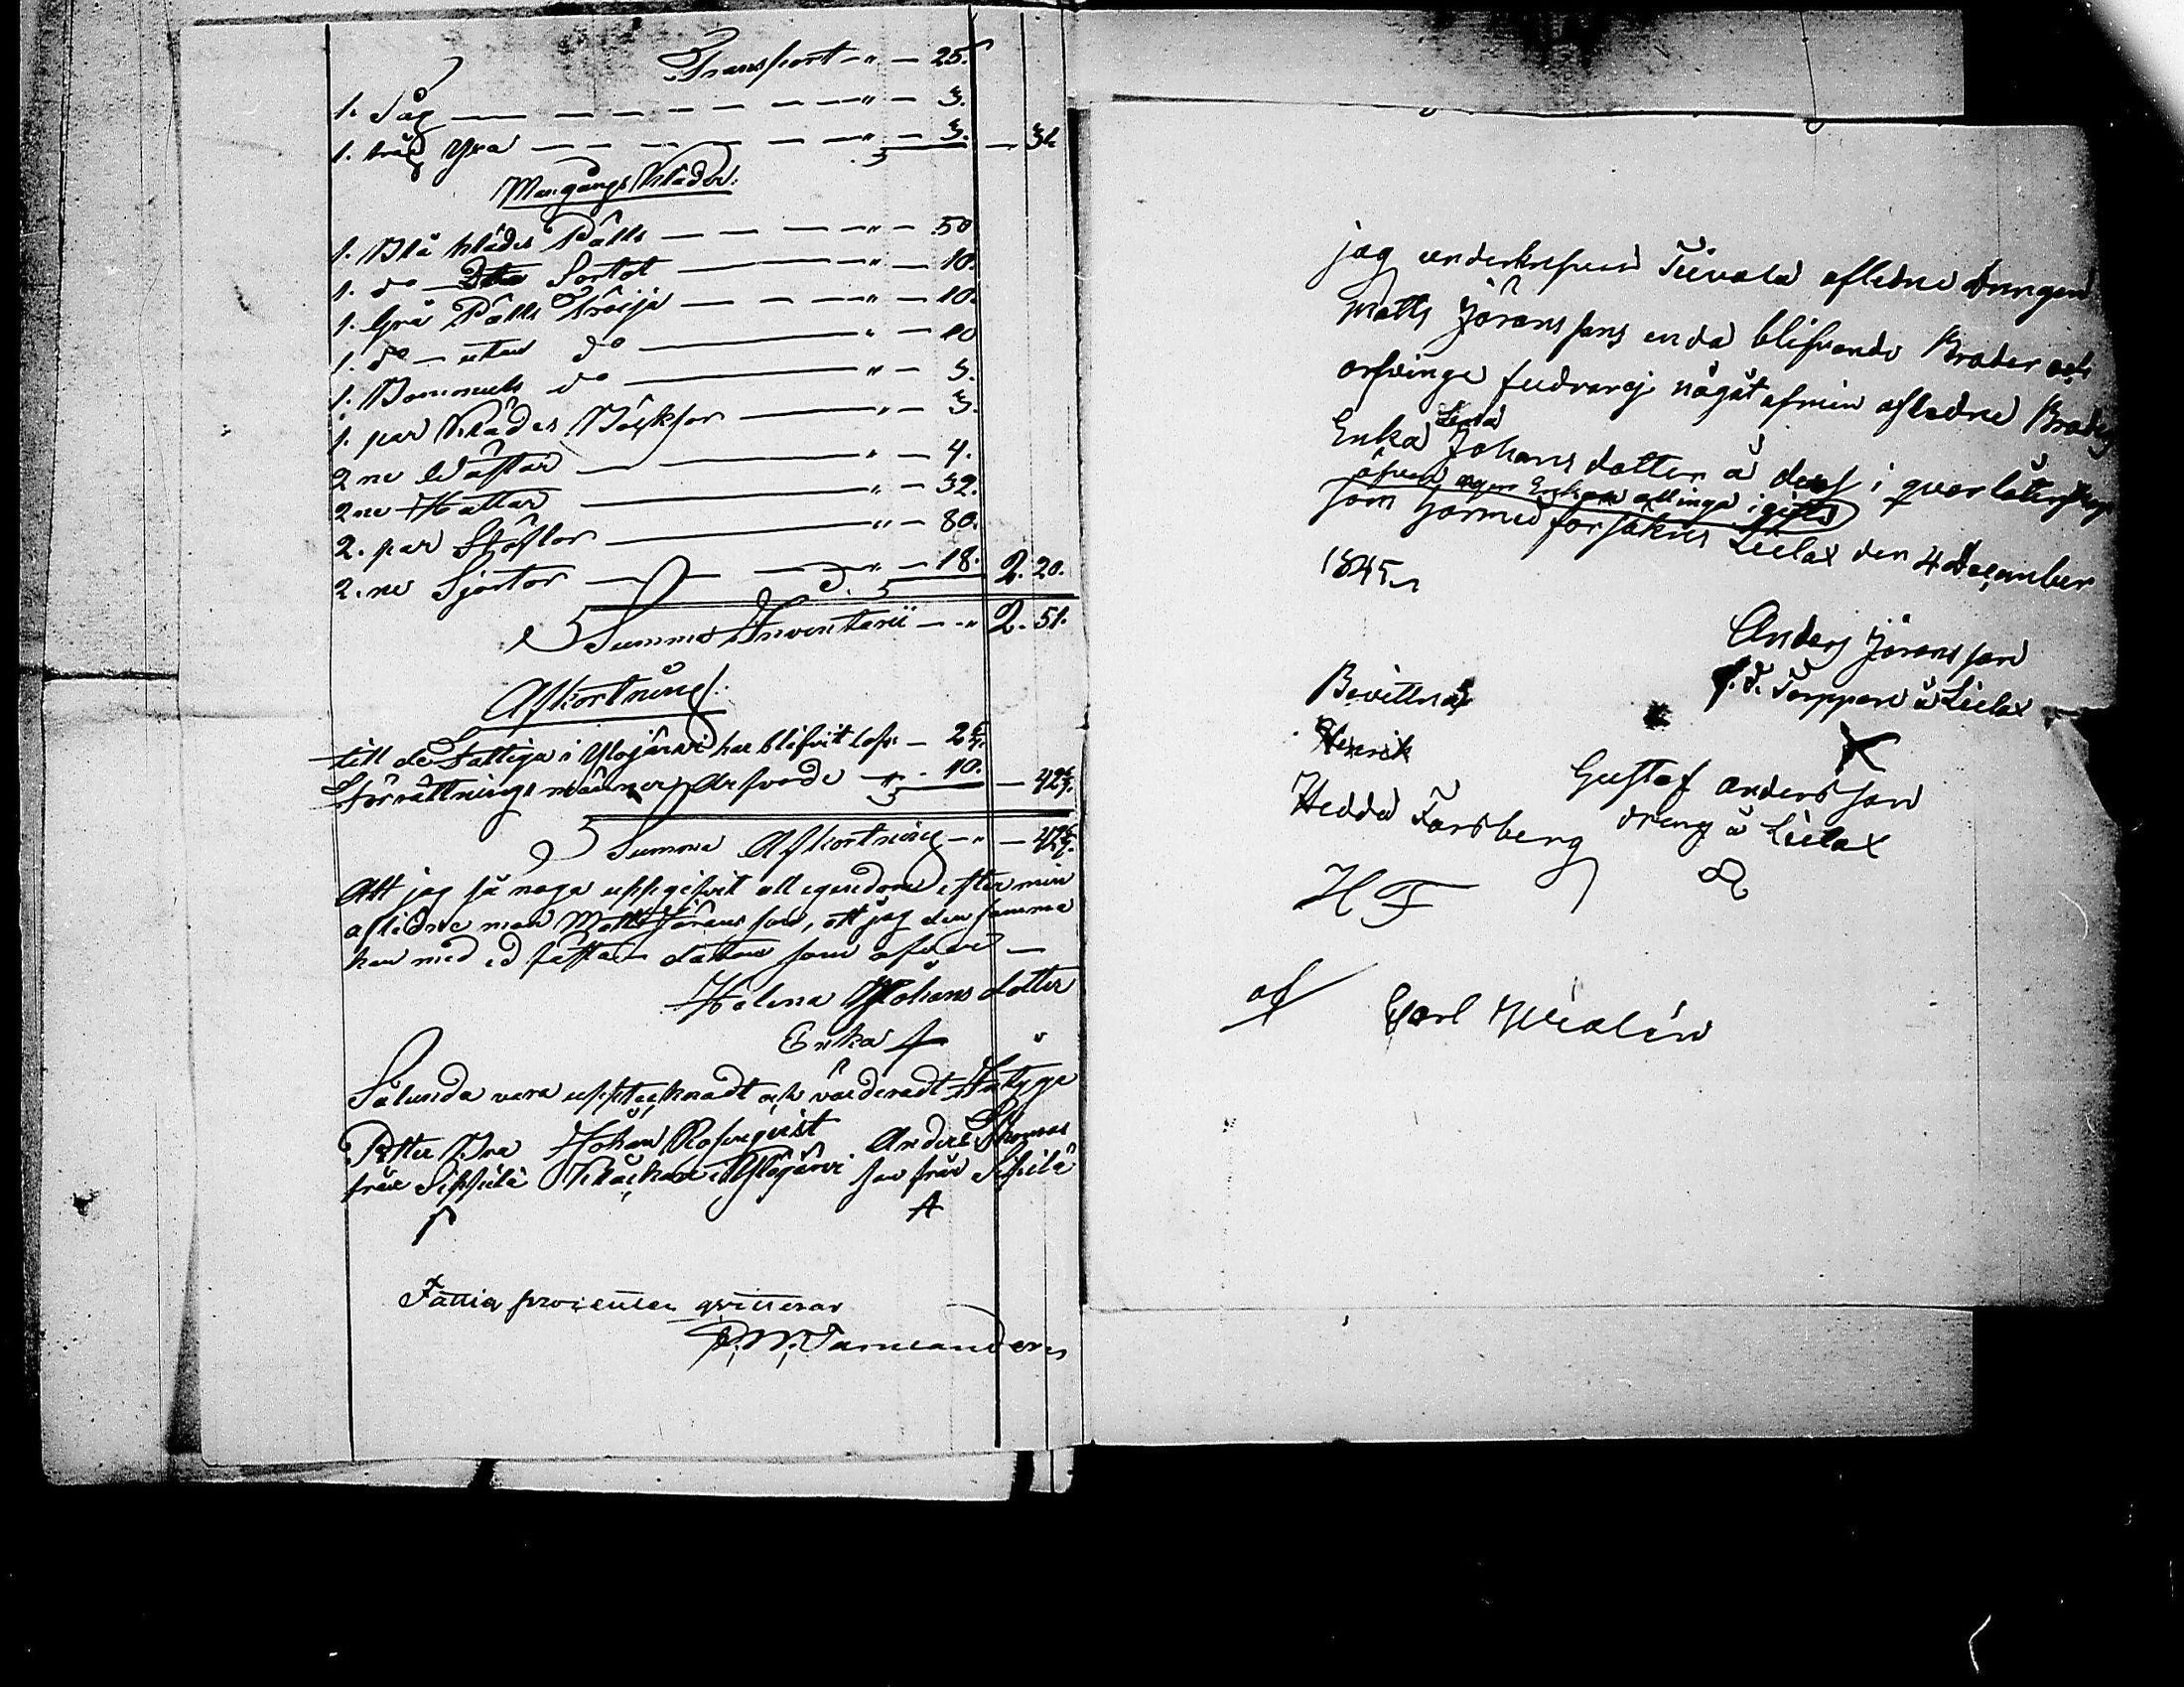 Transport - " - 25.
1. Såg - " - 3.
1. träd Yxa - " - 3. - 31.
Mangångs Kläder:
1. Blå klädes Pälls - " - 50
1. do Sortot - " - 10.
1. Grå Pälls Tröija - " - 10.
1. do - utan do - " - 10
1. Bommuls do - " - 3.
1. par Klädes Böxsor - " - 3.
2ne Wästar - " - 4.
2ne Hattar - " - 32.
2. par Stöflor - " - 80.
2.ne Sjortor - " - 18. 2. 20.
Summa Inventarii - " 2. 51.
Afkortning:
till de Fattiga i Ylöjärvi har blifvit
Förrättnings männers Arfvode - " - 10.
Summa Afkortning - "
Att jag så noga uppgifvit all egendom efter min
aflidne man Matts Jöransson, att jag den samma
kan med ed fästa som ofvan
Helena Johansdotter
Enka
Sålunda vara upptecknadt och värderadt betyga
Petter Johan Rosenqvist Anders Thomas
från Sippilä Klåckare i Ylöjärvi son från Sipilä
Fattig procenten qvitterar
jag underskrefven Tiivola afledne drengen
Matts Jöranssons enda blifvande Broder och
arfvinge fudrar ej något af min afledne Broders
Enka Lena Johans dotter å dess qvarlåtenskap
som härmed försäkras Lielax den 4 December
1845
Anders Jöransson
f.d. Torppare å Lielax
Bevittnas
Henrik
Gustaf andersson
dreng å Lielax
Hedda Forsberg
H F
af Carl